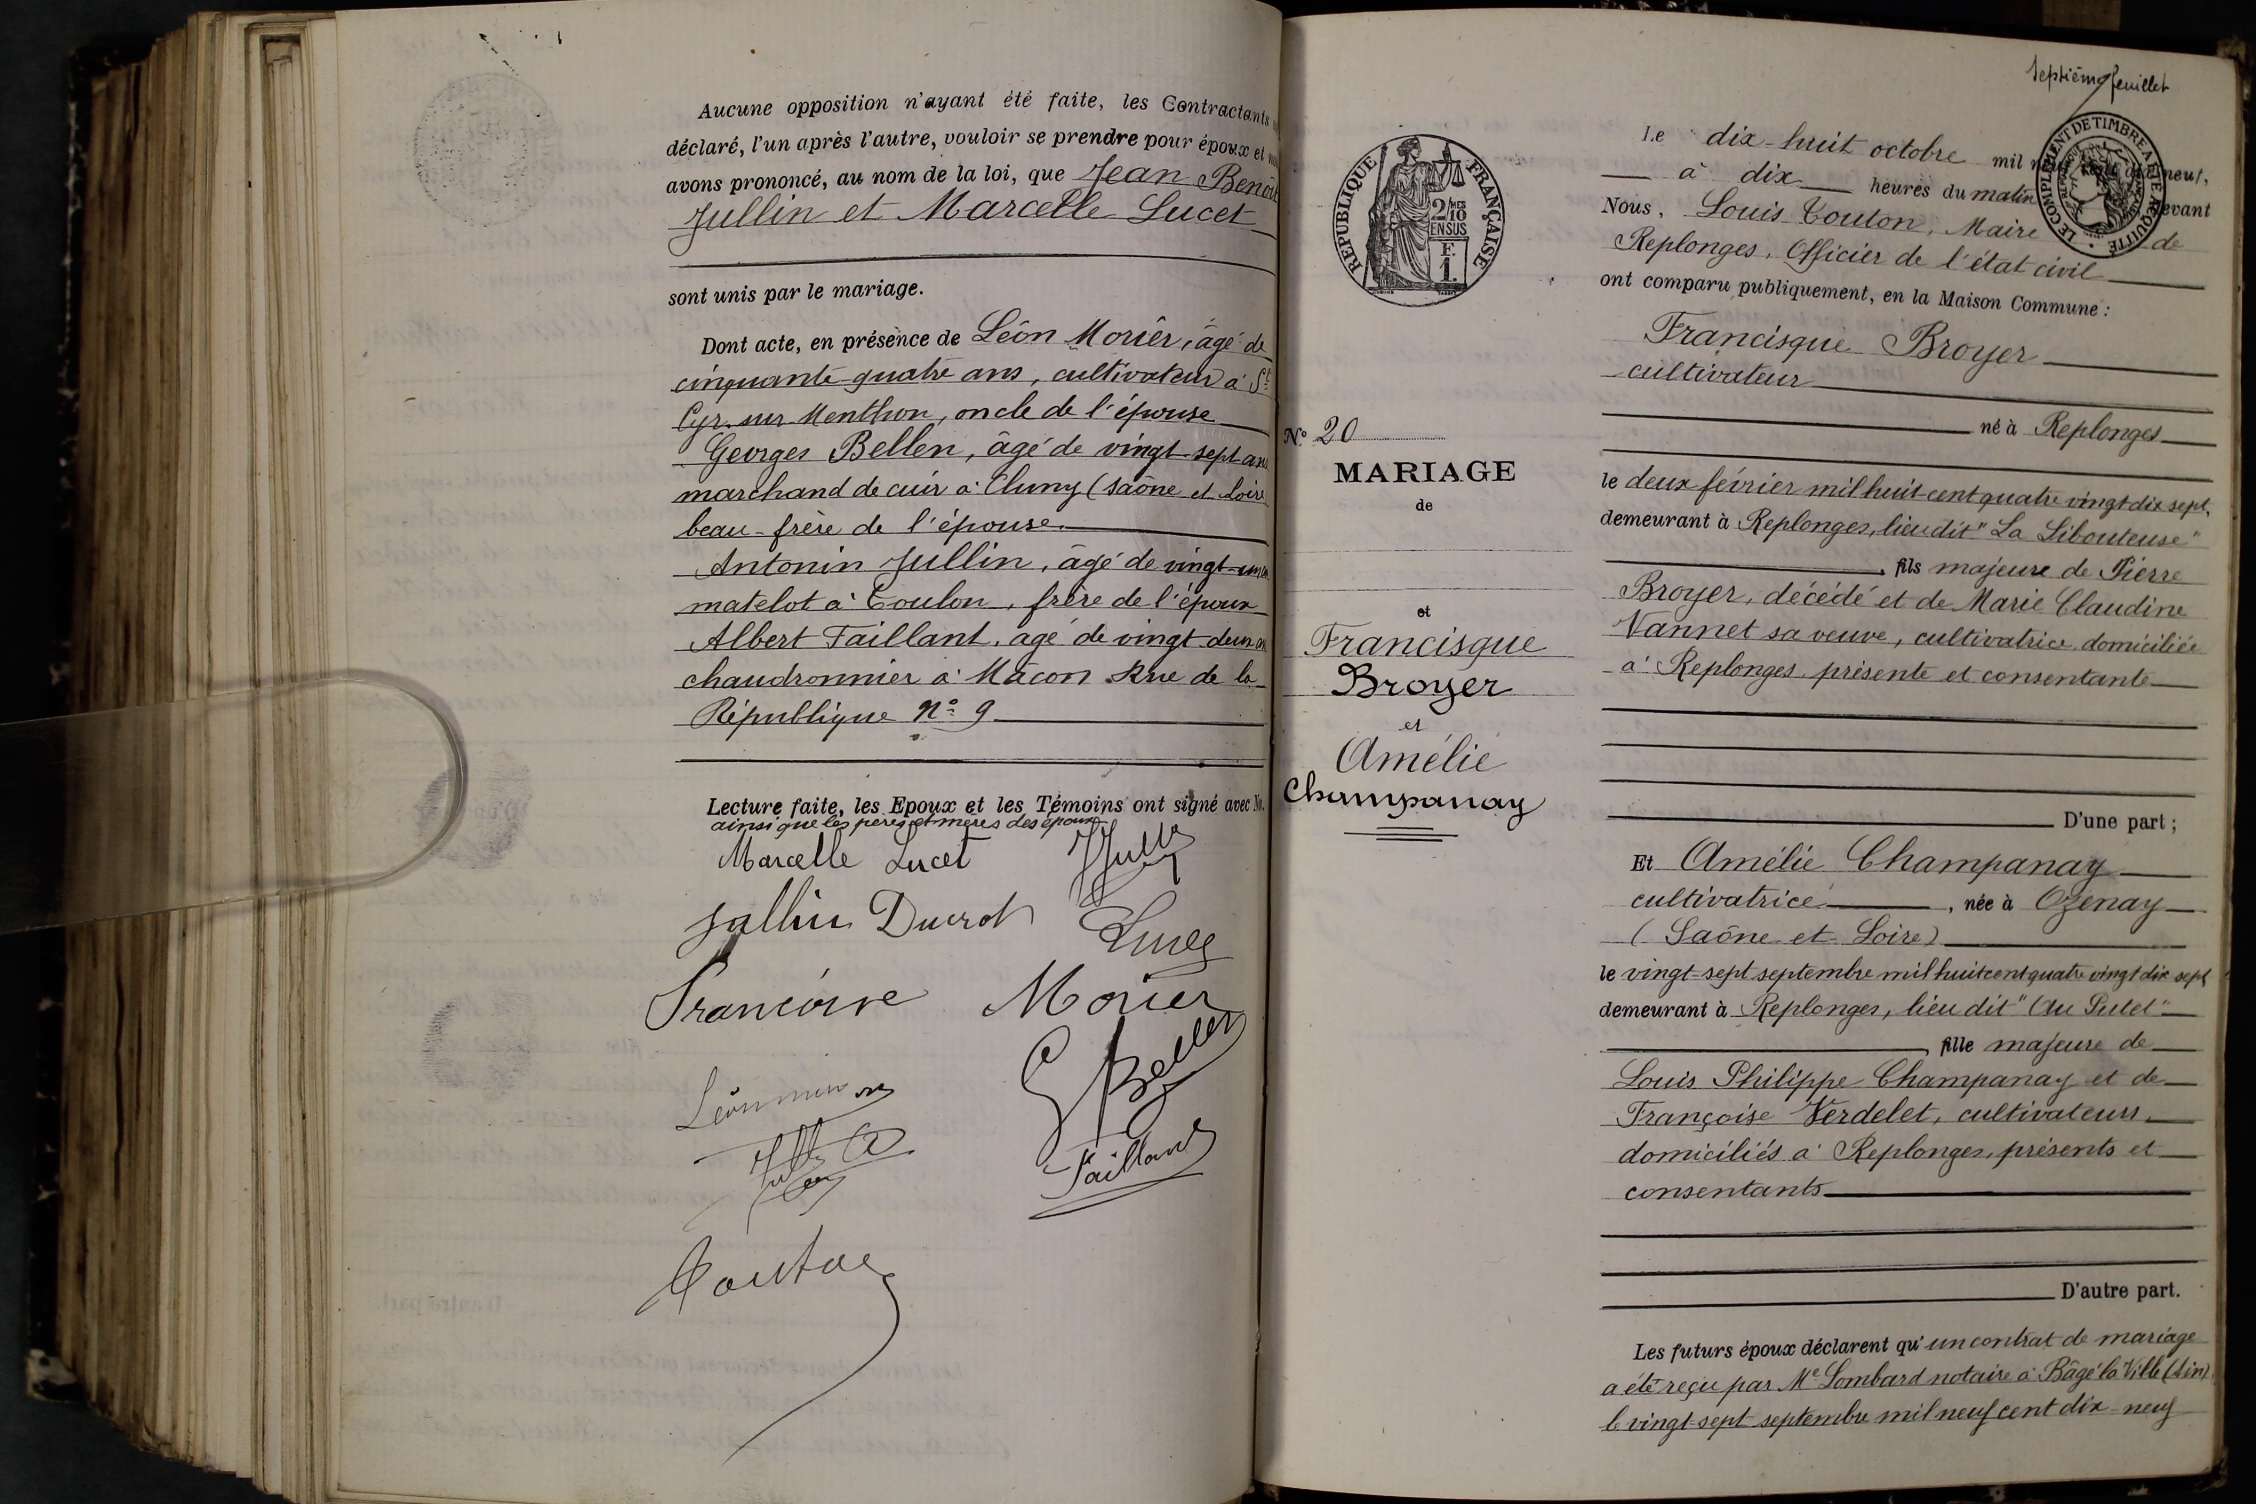 Aucune opposition n'ayant été faite, les Contractants
déclaré, l'un après l'autre, vouloir se prendre pour époux et
avons prononcé, au nom de la loi, que Jean Benoît
Jullin et Marcelle Lucet
sont unis par le mariage.
Dont acte, en présence de Léon Morier, âgé de
cinquante quatre ans, cultivateur à St
Cyr sur Menthon, oncle de l'épouse
Georges Bellen, âgé de vingt-sept ans
marchand de cuir à Cluny (Saône et Loire
beau-frère de l'épouse.
Antonin Jullin, âgé de vingt-un
matelot à Toulon, frère de l'époux
Albert Taillant, agé de vingt-deux
chaudronnier à Mâcon Rue de la
République No 9
Lecture faite, les Epoux et les Témoins ont signé avec
ainsi que les pères et mères des époux
Marcelle Lucet JJullin
Jullin Ducrot Lucet
Françoise Morier
G Bellen
Taillant
Septième feuillet
RÉPUBLIQUE FRANÇAISE
2/10
EN SUS
F.
1.
LE COMPLÉMENT DE TIMBRE A ÉTÉ ACQUITTÉ
Le dix-huit octobre mil neuf,
à dix heures du matin devant
Nous, Louis Touton, Maire de
Replonges, Officier de l'état civil
ont comparu publiquement, en la Maison Commune :
Francisque Broyer
cultivateur
né à Replonges
le deux février mil huit cent quatre vingt dix sept,
demeurant à Replonges, lieu dit "La Libouteuse"
, fils majeure de Pierre
Broyer, décédé et de Marie Claudine
Vannet sa veuve, cultivatrice domiciliée
à Replonges, présente et consentante
D'une part ;
Et Amélie Champanay
cultivatrice, née à Ozenay
(Saône et Loire)
le vingt-sept septembre mil huit cent quatre vingt dix sept
demeurant à Replonges, lieu dit "Au Putet"
, fille majeure de
Louis Philippe Champanay et de
Françoise Verdelet, cultivateurs,
domiciliés à Replonges, présents et
consentants
D'autre part.
Les futurs époux déclarent qu'un contrat de mariage
a été reçu par Me Lombard notaire à Bâgé la Ville (Ain)
le vingt-sept septembre mil neuf cent dix-neuf
No 20
MARIAGE
de
et
Francisque
Broyer
et
Amélie
Champanay